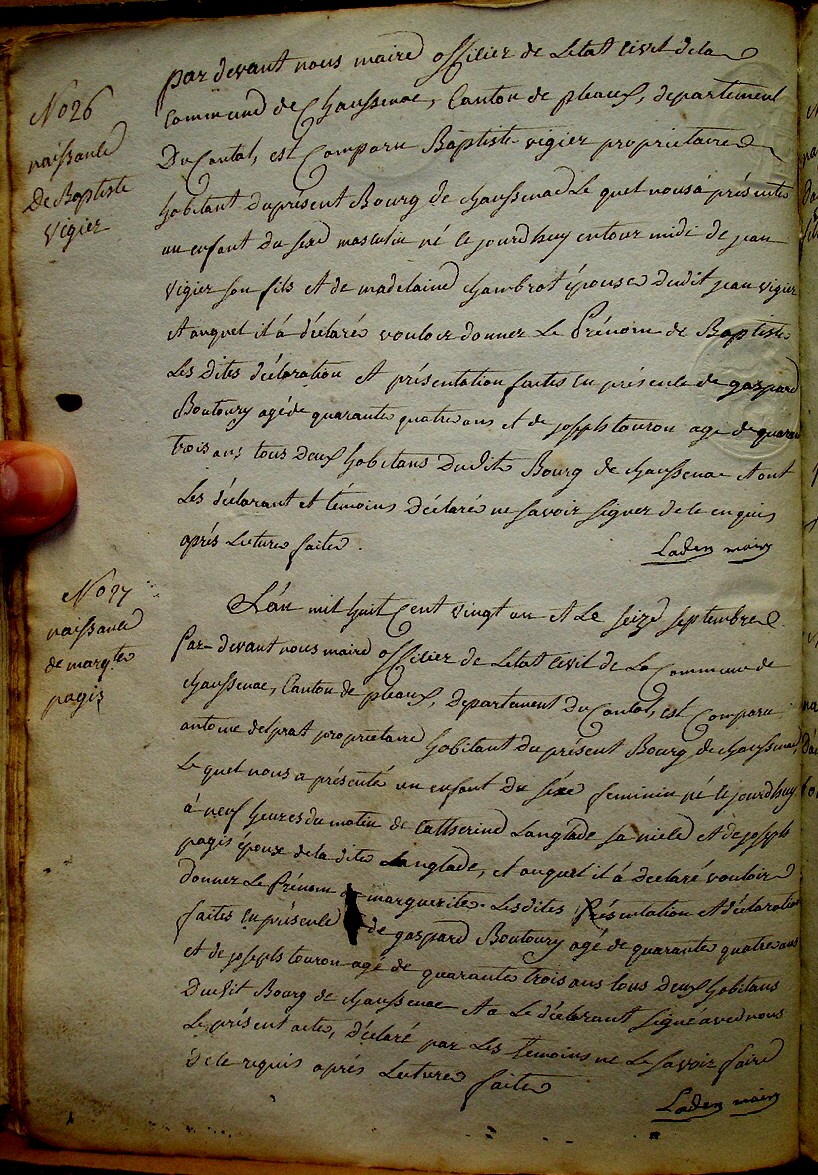 No 26
naissance
De Baptiste
Vigier
par devant nous maire officier de Letat Civil de la
Commune de Chaussenac, Canton de pleaux, departement
Du Cantal, est Comparu Baptiste vigier proprietaire
habitant du present Bourg de chaussenac Le quel nous á présenté
un enfant du sexe masculin né le jourdhuy entour midi de jean
vigier son fils et de madelaine chambrot épouse dudit jean vigier
et auquel il á déclaré vouloir donner Le Prénom de Baptiste
Les Dites déclaration et présentation faites en présence de gaspard
Boutoury agé de quarante quatre ans et de joseph touron age de quarante
trois ans tous Deux habitans Dudit Bourg de chaussenac et ont
Les déclarant et témoins Déclaré ne savoir signer de ce enquis
aprés Lecture faite.
Laden maire
No 27
naissance
de margte
pagis
L'an mil huit Cent vingt un et Le seize septembre
Par devant nous maire officier de Letat Civil de La Commune de
chaussenac, Canton de pleaux, Departement Du Cantal, est Comparu
antoine delprat proprietaire habitant du présent Bourg de chaussenac
Le quel nous a présenté un enfant du séxe feminin né le jourdhuy
á neuf heures du matin de Catherine Langlade sa niece et de joseph
pagis époux de la dite Langlade, et auquel il á declaré vouloir
donner Le Prénom de marguerite. Les dites Présentation et déclaration
faites en présence de gaspard Boutoury agé de quarante quatre ans
et de joseph touron agé de quarante trois ans tous Deux habitans
Dudit Bourg de chaussenac et a Le déclarant signé avec nous
Le présent acte, déclaré par Les temoins ne Le savoir faire
de ce requis aprés Lecture faite
Laden maire